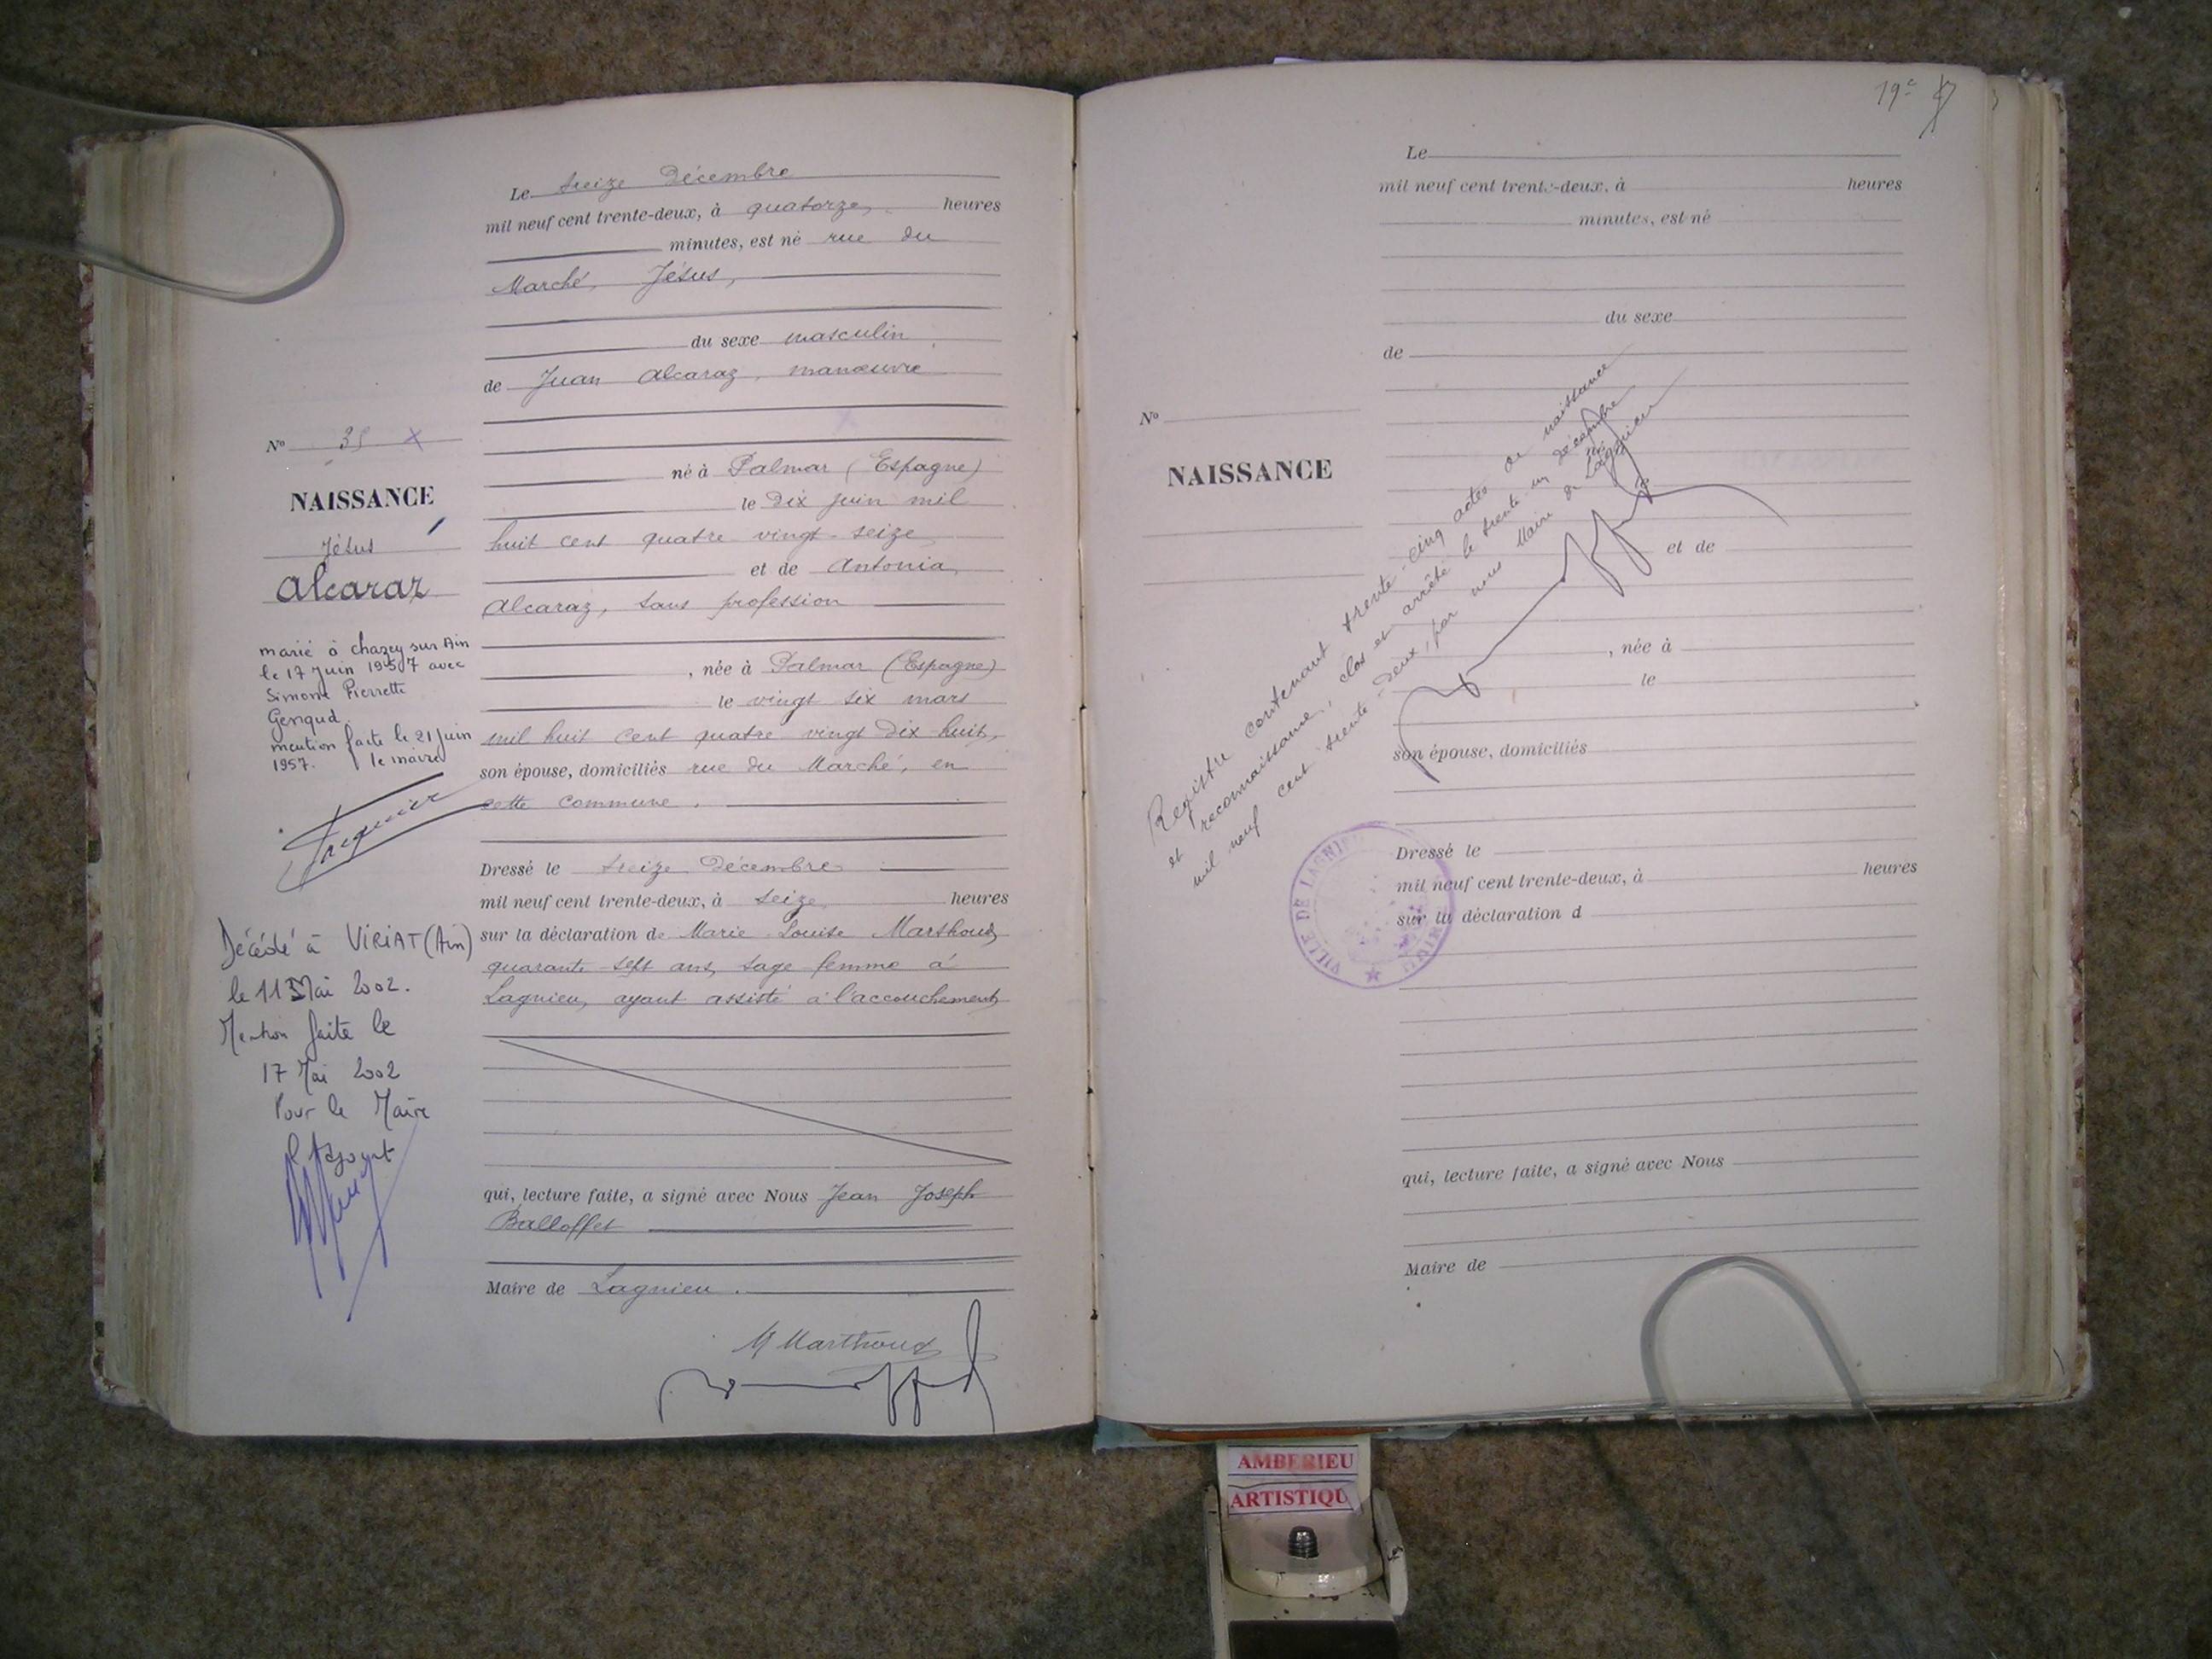 Le treize Décembre
mil neuf cent trente-deux, à quatorze heures
minutes, est né rue du
Marché, Jésus,
du sexe masculin
de Juan Alcaraz, manœuvre
né à Palmar (Espagne)
le dix juin mil
huit cent quatre vingt seize
et de Antonia
Alcaraz, sans profession
, née à Palmar (Espagne)
le vingt six mars
mil huit cent quatre vingt dix huit,
son épouse, domiciliés rue du Marché, en
cette commune.
Dressé le treize Décembre
mil neuf cent trente-deux, à seize heures
sur la déclaration de Marie Louise Marthoud
quarante sept ans, sage femme à
Lagnieu, ayant assisté à l'accouchement
qui, lecture faite, a signé avec Nous Jean Joseph
Balloffet
Maire de Lagnieu.
M Marthoud
No 35
NAISSANCE
Jésus
Alcaraz
marié à chazey sur Ain
le 17 juin 1957 avec
Simone Pierrette
mention faite le 21 juin
1957. le maire
Décédé à VIRIAT (Ain)
le 11 Mai 2002.
Mention faite le
17 Mai 2002
Pour le Maire
l'Adjoint
19e
Le
mil neuf cent trente-deux, à heures
minutes, est né
du sexe
de
No
NAISSANCE
et de
, née à
le
son épouse, domiciliés
Dressé le
mil neuf cent trente-deux, à heures
sur la déclaration d
qui, lecture faite, a signé avec Nous
Maire de
Registre contenant trente-cinq actes de naissance
et reconnaissance, clos et arrêté le trente un décembre
mil neuf cent trente-deux, par nous Maire de Lagnieu
VILLE DE LAGNIEU
AMBERIEU
ARTISTIQU